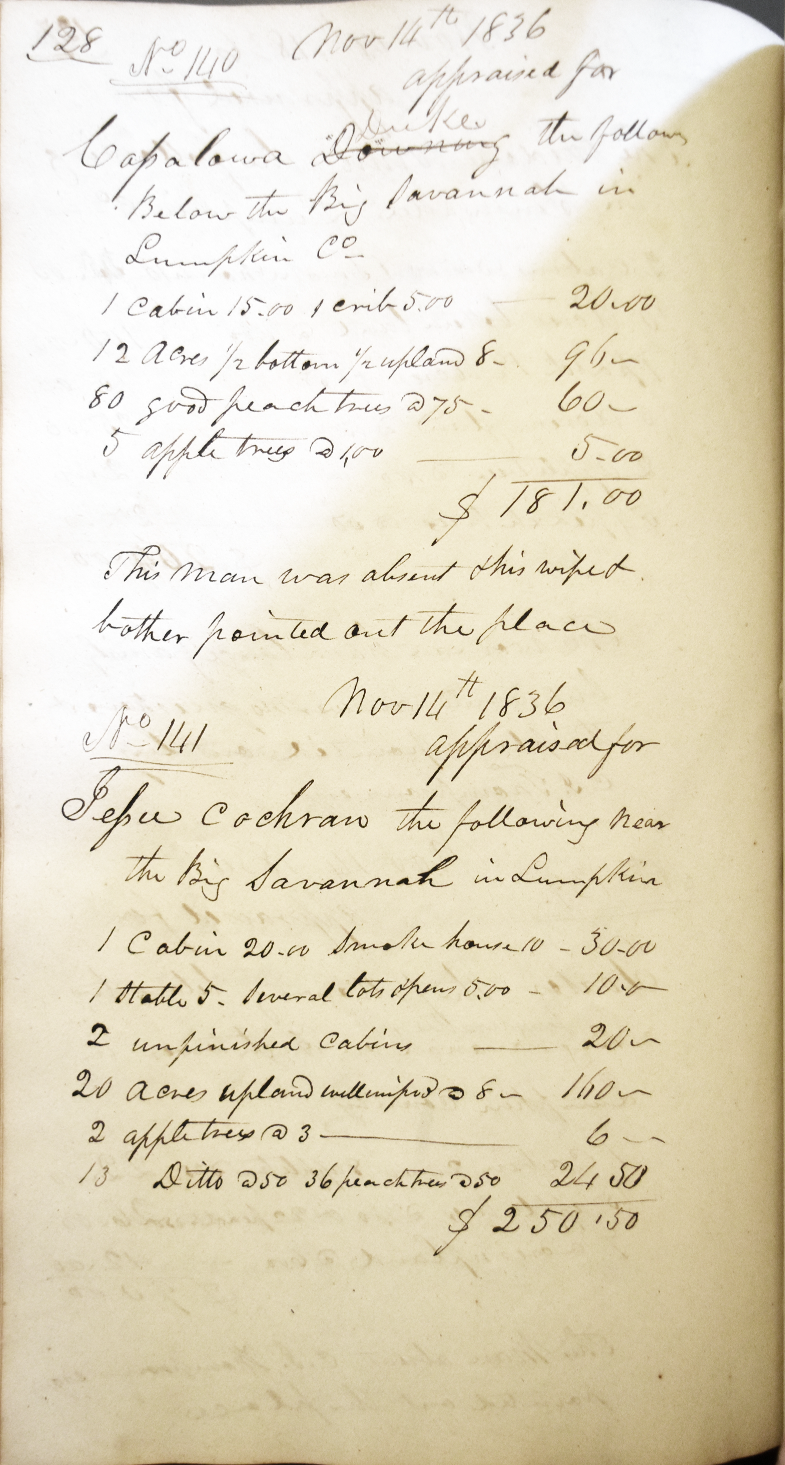 128
No 140 Nov 14th 1836
appraised for
Duke
Copalowa Downing the follow
Below the Big Savannah in
Lumpkin Co
1 Cabin 15.00 1 crib 5.00 — 20.00
12 Acres 1/2 bottom 1/2 upland 8- 96—
80 good peach trees @ 75 - 60—
5 apple trees @ 1,00 — 5.00
$ 181.00
This man was absent & his wife &
bother pointed out the place
Nov 14th 1836
No 141
appraised for
Jessee Cochran the following near
the Big Savannah in Lumpkin
1 Cabin 20.00 Smoke house 10 - 30.00
1 Stable 5- Several lots & pens 5.00 - 10.0
2 unfinished Cabins — 20—
20 Acres upland well impd @ 8— 160—
2 apple trees @ 3 — 6—
13 Ditto @ 50 36 peach trees @ 50 24 50
$ 250.50